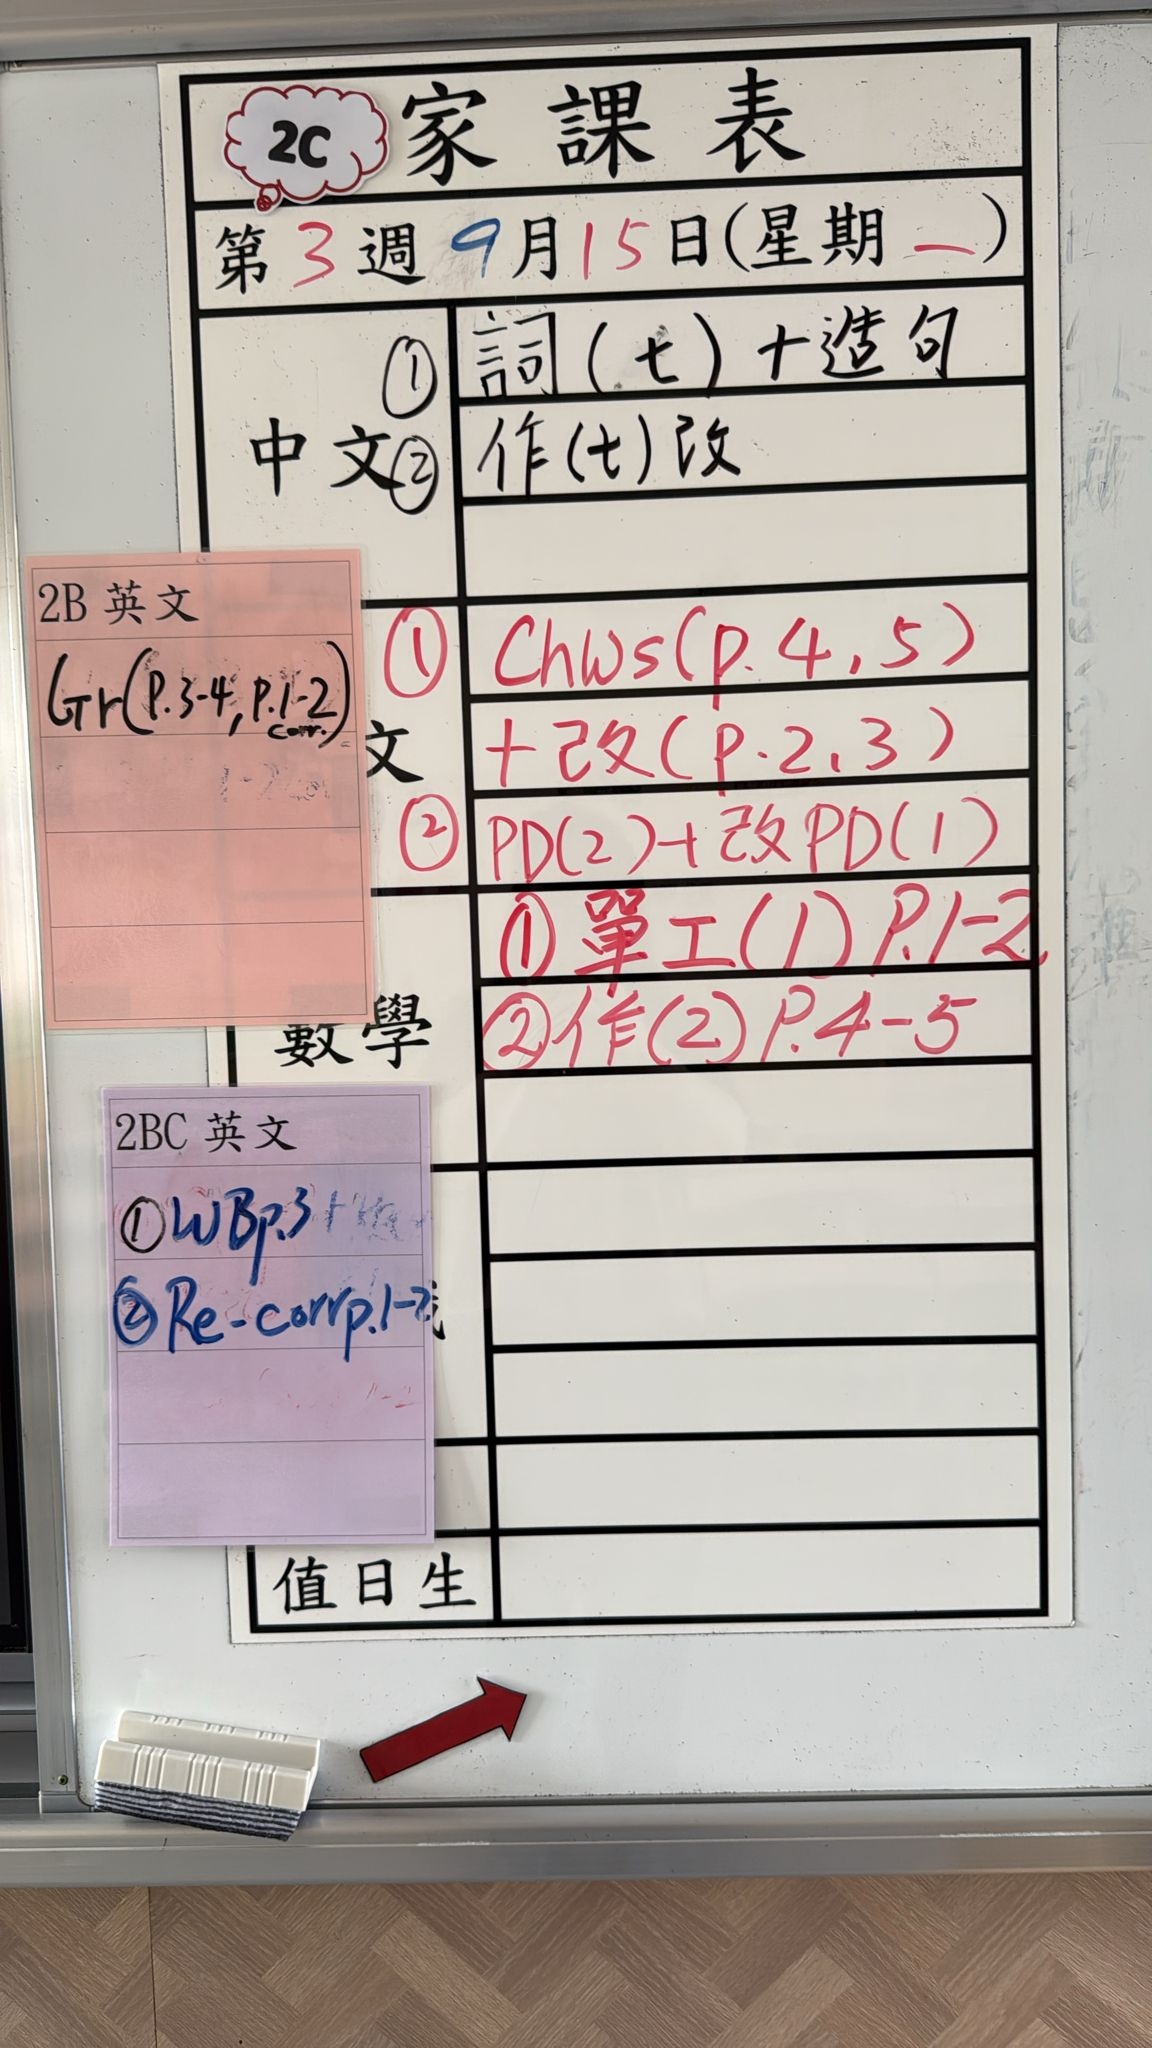 2C 家課表
第3週 9月15日(星期一)
中文
① 詞(七)+造句
② 作(七)改
文
① Chws(p.4,5)
+改(p.2,3)
② PD(2)+改PD(1)
數學
① 單工(1) P.1-2
② 作(2) P.4-5
2B 英文
Gr(P.3-4, P.1-2)
corr.
2BC 英文
① WBp.3
② Re-corrp.1-2
值日生